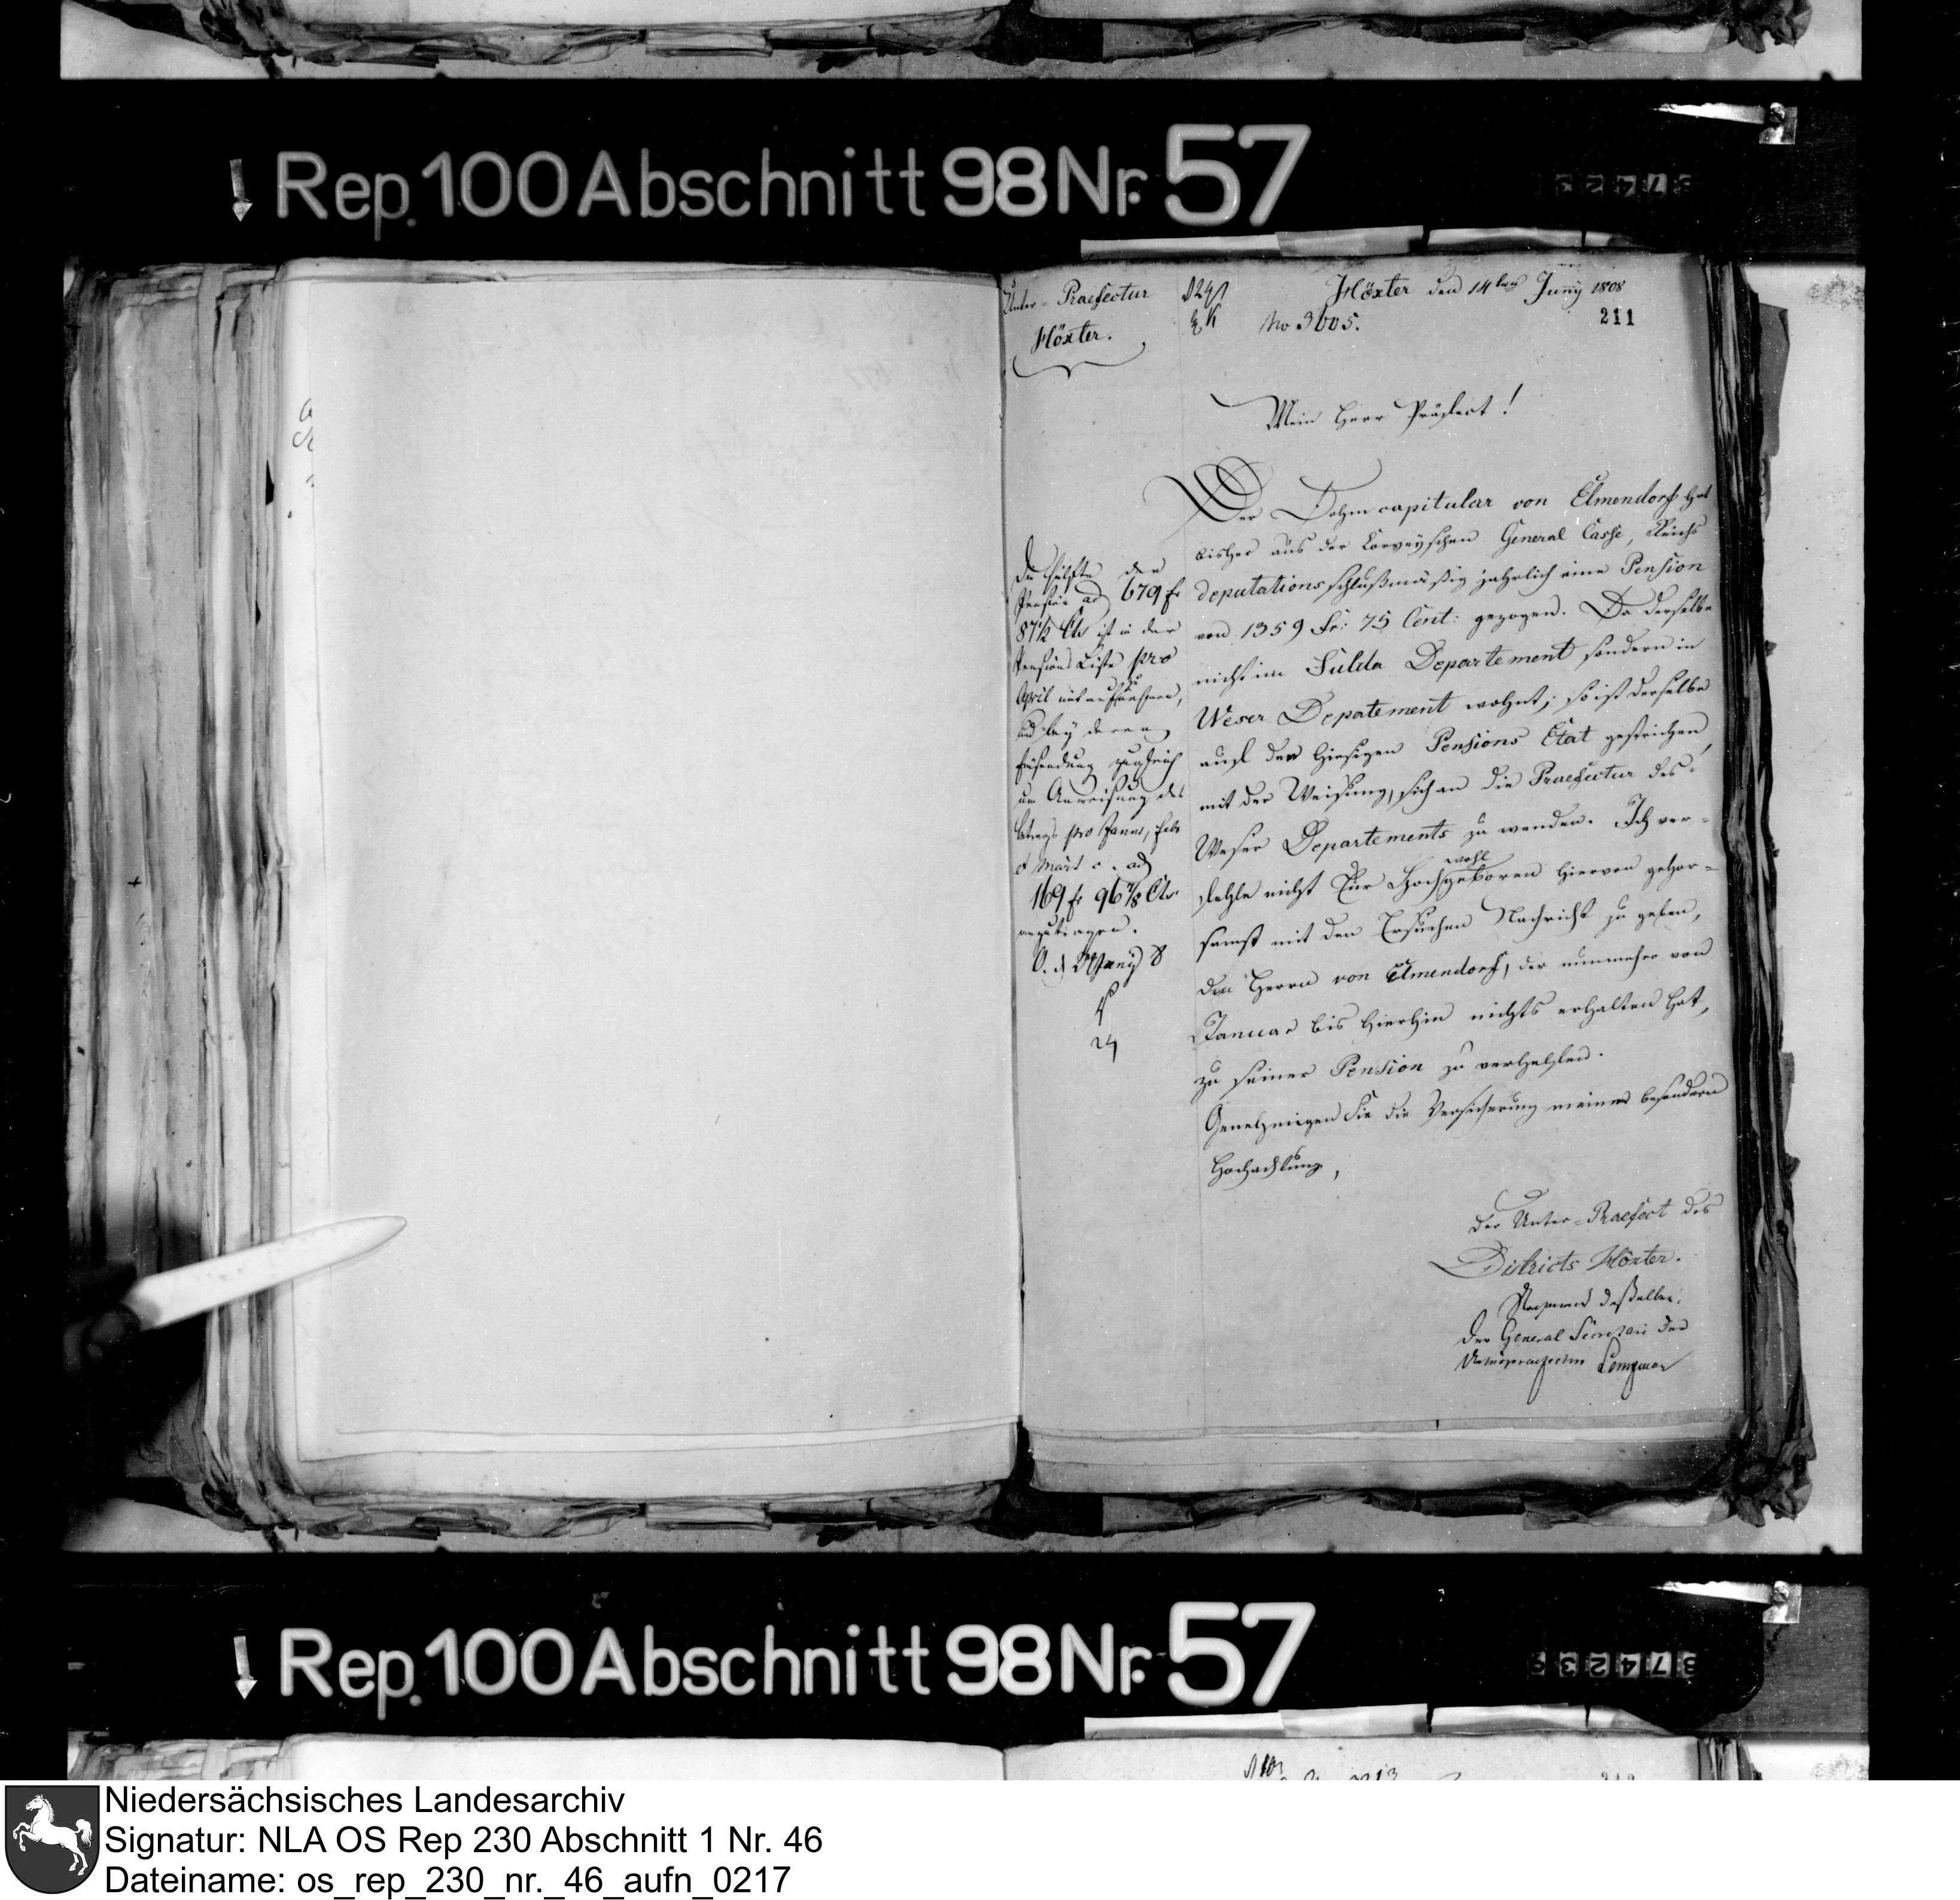 Rep. 100 Abschnitt 98 Nr. 57
Unter-Praefectur
Höxter.
Höxter den 14ten Juny 1808
No 3605.
211
Mein Herr Präfect!
Der Dohmcapitular von Elmendorff hat
bisher aus der Corveyschen General Casse, Reichs
deputationsschlußmäßig jahrlich eine Pension
von 1359 Fr: 75 Cent: gezogen. Da derselbe
nicht im Fulda Departement sondern in
Weser Depatement wohnt; so ist derselbe
aus der hiesigen Pensions Etat gestrichen,
mit der Weisung, sich an die Praefectur des
Weser Departements zu wenden. Ich ver-
fehle nicht Eur Hochwohlgeboren hiervon gehor-
samst mit den Ersuchen Nachricht zu geben,
den Herrn von Elmendorff, der nunmehro von
Januar bis hierhin nichts erhalten hat,
zu seiner Pension zu verhelfen.
Genehmigen Sie die Versicherung meiner besondern
Hochachtung,
Der Unter-Praefect des
Districts Höxter.
Der General Secretair der
Unterpraefectur
Die Hälfte der
Pension ad 679 fr
87½ Cts ist in der
Pensions Liste pro
April mit aufzunehmen,
und bey deren
Einsendung zugleich
um Anweisung des
Betrags pro Januar, Febr
et Mart c. ad
169 fr 96 7/8 Cts
anzutragen.
Rep. 100 Abschnitt 98 Nr. 57
87423
Niedersächsisches Landesarchiv
Signatur: NLA OS Rep 230 Abschnitt 1 Nr. 46
Dateiname: os_rep_230_nr._46_aufn_0217